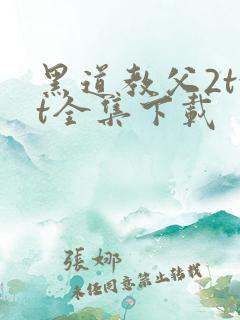 黑道教父2tx
t全集下载
張娜
未经同意禁止转载